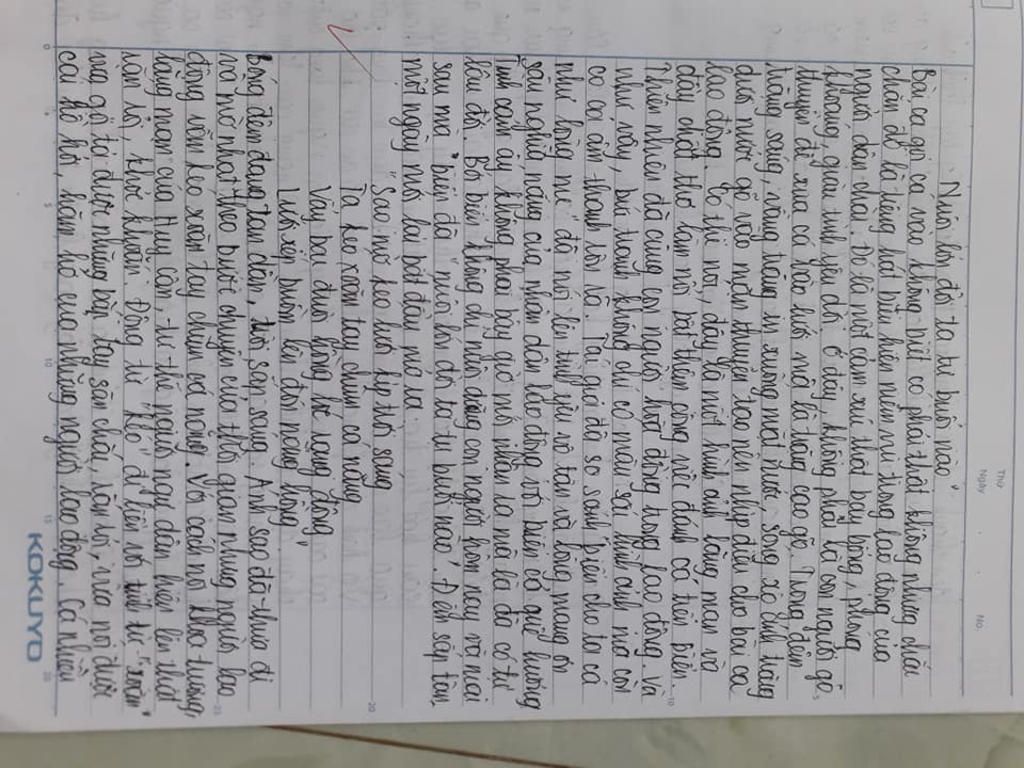 Thứ
Ngày No.
Nuôi lớn đời ta tự buổi nào".
Bài ca gọi cá vào không biết có phải thật không nhưng chắc
chắn đó là tiếng hát biểu hiện niềm vui trong lao động của
người dân chài. Đó là một cảm xúc thật bay bổng, phóng
khoáng, giàu tình yêu đời. Ở đây, không phải là con người gõ
thuyền để xua cá vào lưới mà là trăng cao gõ. Trong đêm
trăng sáng, vầng trăng in xuống mặt nước, sóng xô ánh trăng
dưới nước gõ vào mạn thuyền tạo nên nhịp điệu cho bài ca
lao động. Có thể nói, đây là một hình ảnh lãng mạn và
đầy chất thơ làm nổi bật thêm công việc đánh cá trên biển
Thiên nhiên đã cùng con người hòa đồng trong lao động. Và
như vậy, bức tranh không chỉ có màu sắc hình ảnh mà còn
có cả âm thanh lớn nữa. Tác giả đã so sánh "biển cho ta cá
như lòng mẹ" đã nói lên tình yêu vô tận và lòng mang ơn
sâu nghĩa nặng của nhân dân lao động với biển cả quê hương
Tình cảm ấy không phải bây giờ nó nhen lên mà là đã có từ
lâu đời. Bởi biển không chỉ nuôi dưỡng con người hôm nay và mãi
sau mà "biển đã "nuôi lớn đời ta tự buổi nào". Đêm sắp tàn,
một ngày mới lại bắt đầu mở ra.
"Sao mờ kéo lưới kịp trời sáng
Ta kéo xoăn tay chùm cá nặng
Vẩy bạc đuôi vàng lóe rạng đông
Lưới xếp buồm lên đón nắng hồng"
Bóng đêm đang tan dần, trời sắp sáng. Ánh sao đã thưa đi
và mờ nhạt theo bước chuyển của thời gian nhưng người lao
động vẫn kéo xoăn tay chùm cá nặng. Với cách nói khoa trương,
lãng mạn của Huy Cận, tư thế người ngư dân hiện lên thật
rắn rỏi, khỏe khoắn. Động từ "kéo" đi liền với tính từ "xoăn"
mà gợi tả được những bắp tay săn chắc, rắn rỏi, vừa nói được
cái hồ hởi, hăm hở của những người lao động. Cá nhiều
KOKUYO